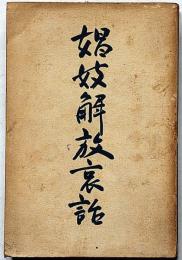 娼妓解放哀話